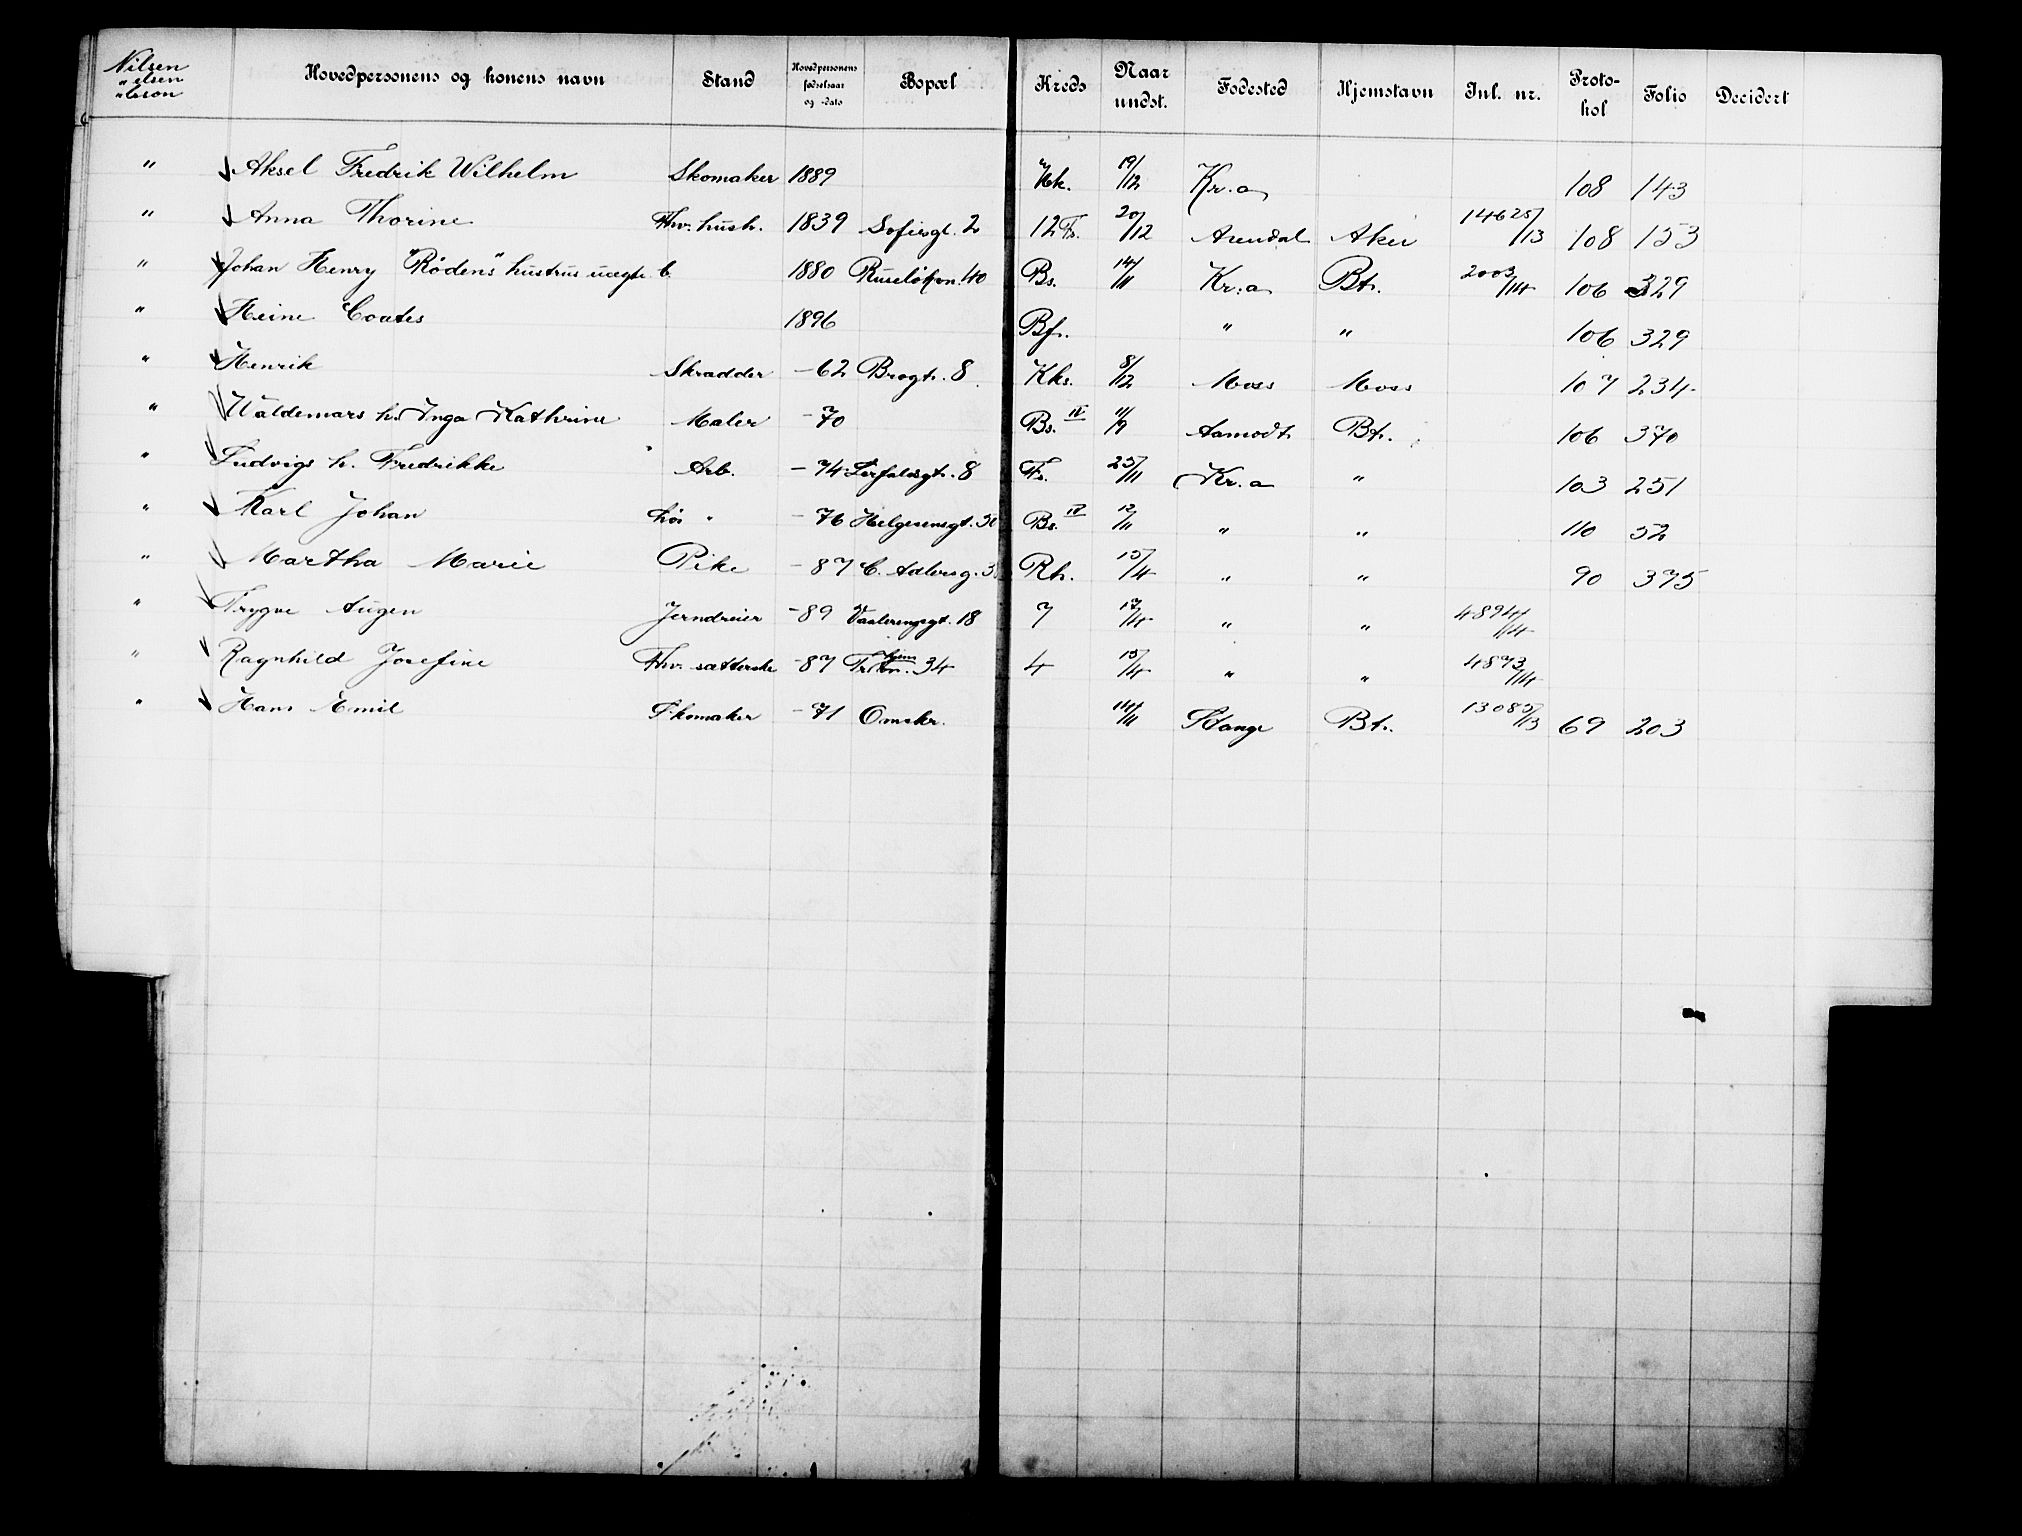 Nilsen
" elsen
" leson
Hovedpersonens og konens navn Stand Hovedpersonens fødselsaar og -dato Bopæl Kreds Naar undst. Fødested Hjemstavn Inl. nr. Protokol Folio Decidert
" Aksel Fredrik Wilhelm Skomaker 1889 Kk. 19/12 Kr.a 108 143
" Anna Thorine Fhv. hush. 1839 Sofiesgt. 2 12 Fs. 20/12 Arendal Aker 14625/13 108 153
" Johan Henry "Rødens" hustrus uægte b. 1880 Ruseløkvn. 40 Bs. 14/11 Kr.a Bt. 2003/14 106 329
" Heine Coates 1896 Bf. " " 106 329
" Henrik Skrædder -62 Brogt. 8 Kks. 8/12 Moss Moss 107 234
" Waldemars h. Inga Kathrine Maler -70 Bs. IV 11/9 Aamodt Bt. 106 370
" Ludvigs h. Fredrikke Arb. -74 Lerfaldsgt. 8 Fs. 25/11 Kr.a " 103 251
" Karl Johan Løs " -76 Helgesensgt. Bs. IV 12/11 " " 110 52
" Martha Marie Pike -87 C. Adlersg. Rh. 15/4 " " 90 375
" Trygve Augen Jerndreier -89 Vaalerengsgt. 18 7 17/4 " " 4894/14
" Ragnhild Josefine Fhv. sætterske -87 Tr.hjem vn. 34 4 15/4 " " 4893/14
" Hans Emil Skomaker -71 Omskr. 14/11 Stange Bt. 13085/13 69 203